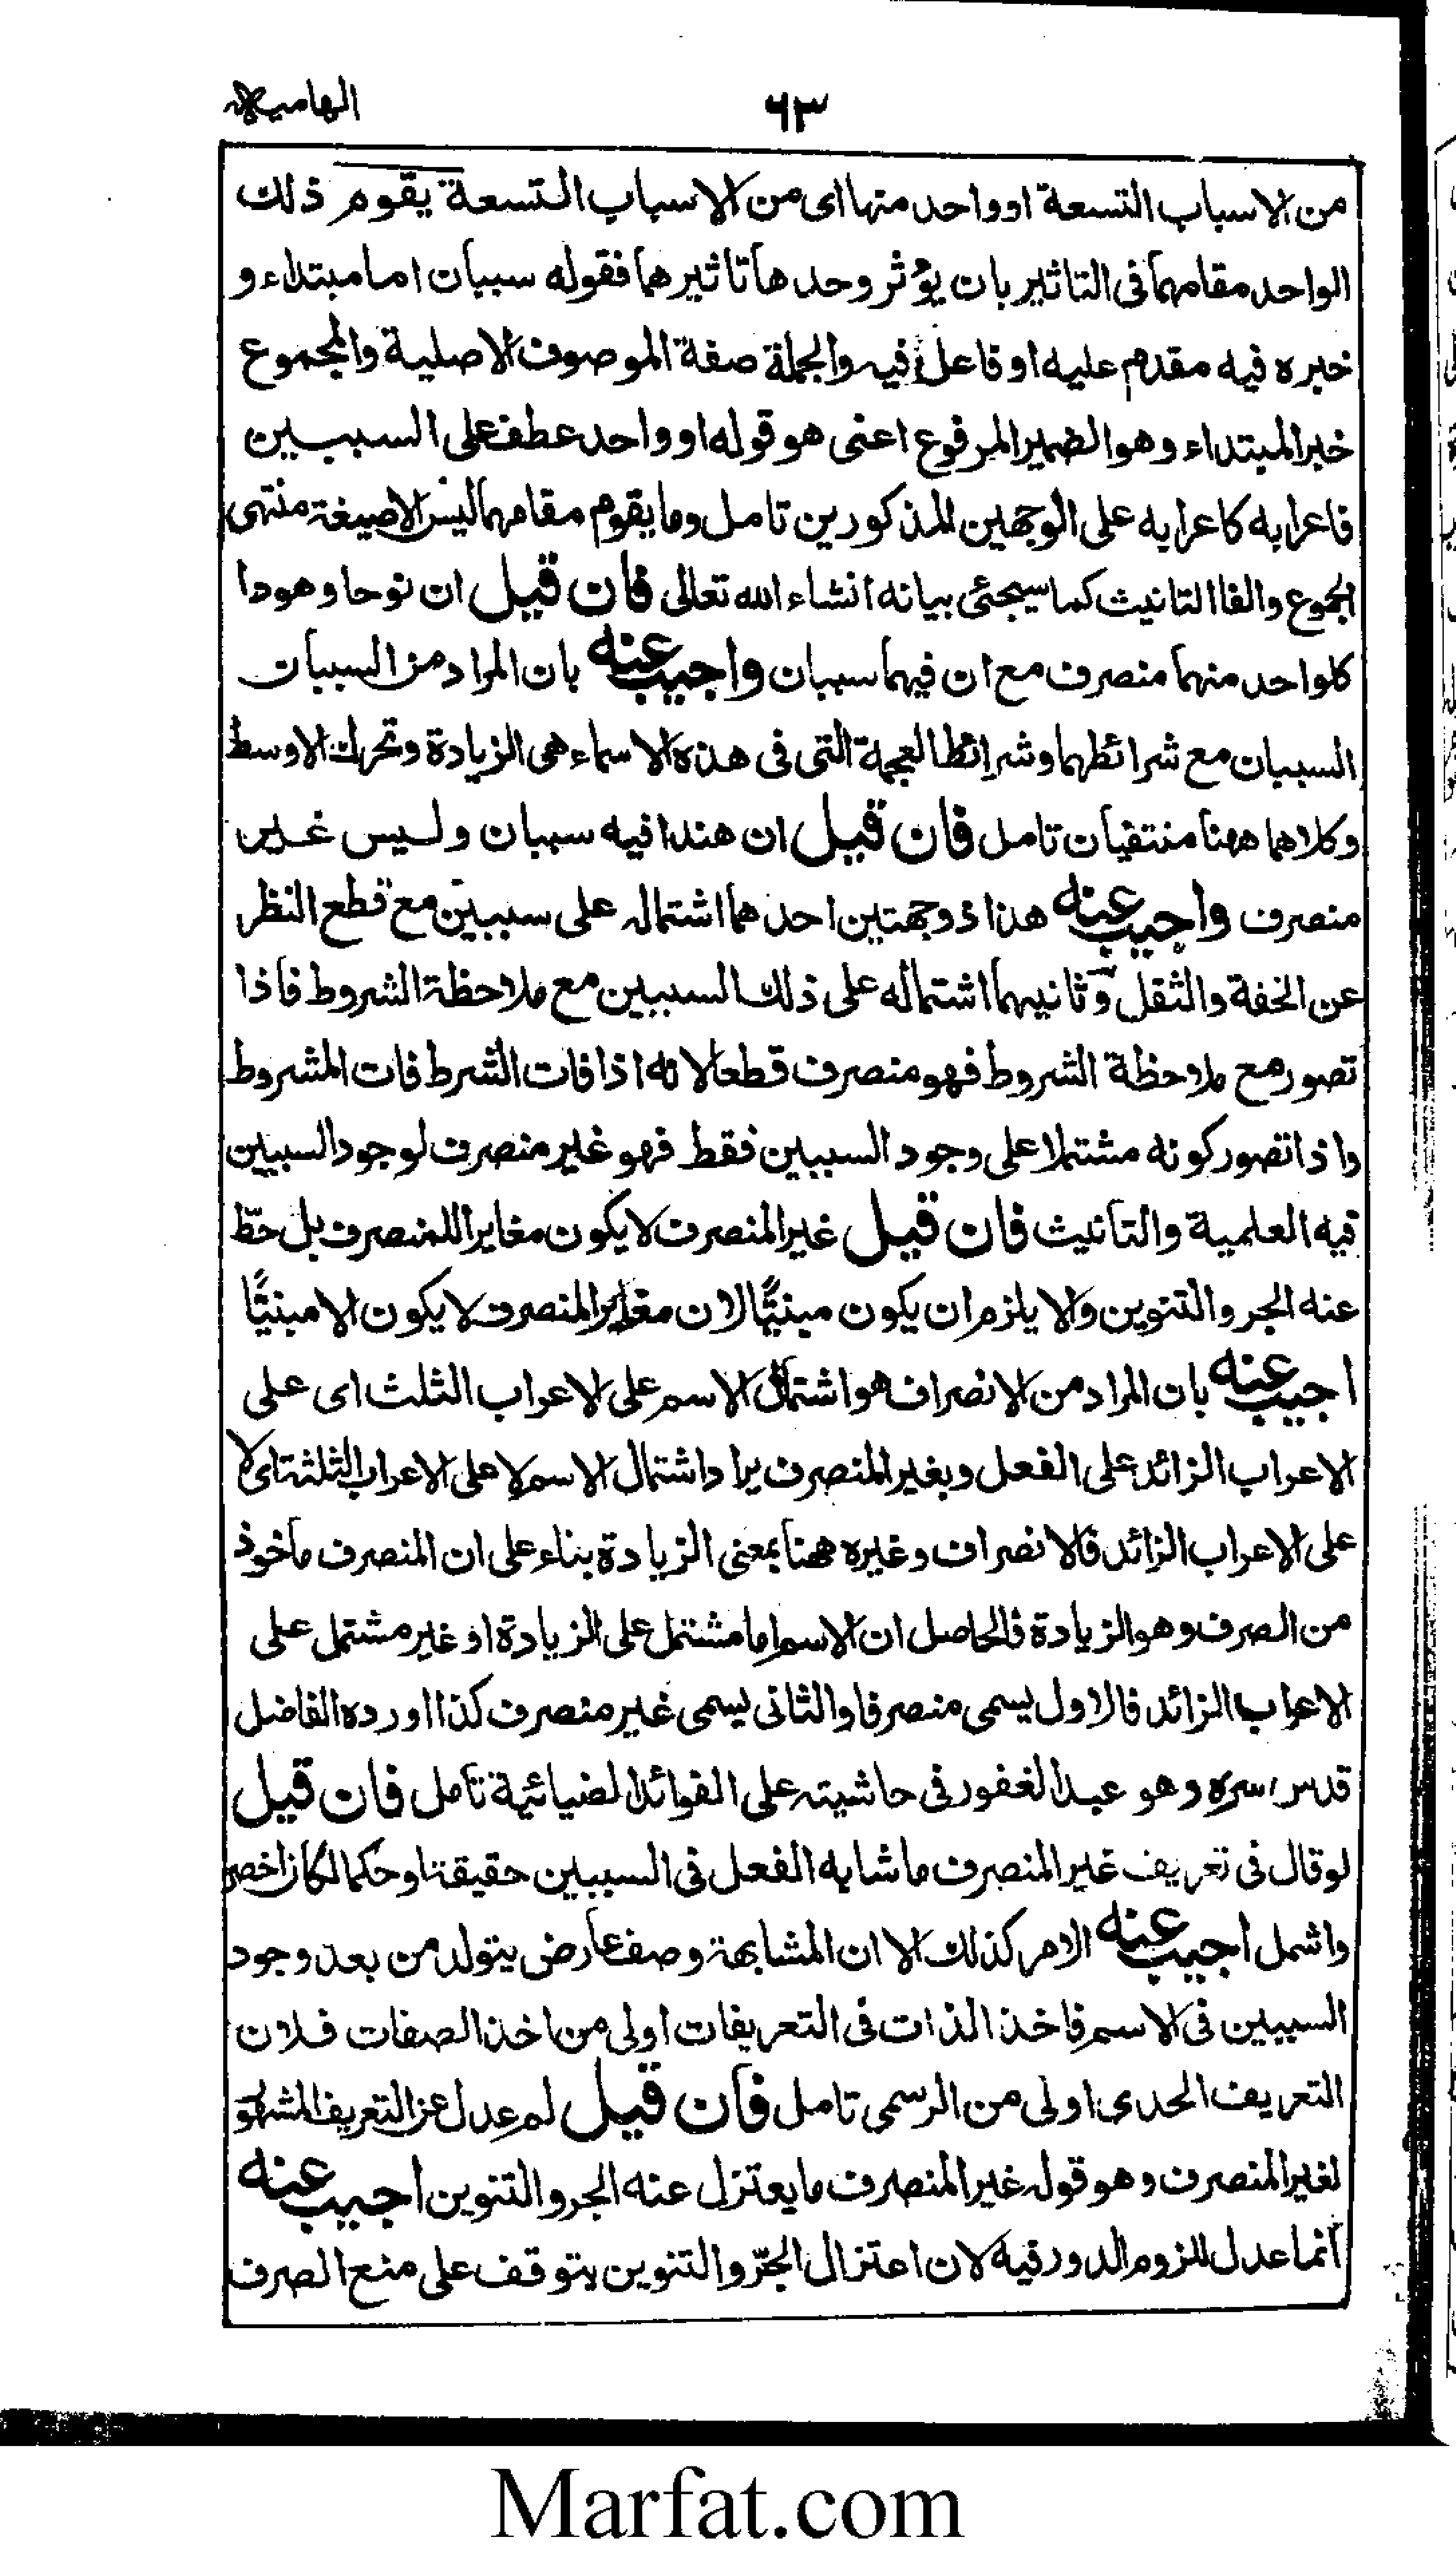 ٦٣
الهامية
من الاسباب التسعة او واحد منها اى من الاسباب التسعة يقوم ذلك
الواحد مقامهما فى التاثير بان يؤثر وحدها تاثيرهما فقوله سببان اما مبتداء و
خبره فيه مقدم عليه او فاعل فيه والجملة صفة الموصوف الاصلية والمجموع
خبر المبتداء وهو الضمير المرفوع اعنى هو قوله او واحد عطف على السببين
فاعرابه كاعرابه على الوجهين المذكورين تامل وما يقوم مقامهما ليس الا صيغة منتهى
الجموع والفا التانيث كما سيجئى بيانه انشاء الله تعالى فان قيل ان نوحا وهودا
كلواحد منهما منصرف مع ان فيهما سببان واجيب عنه بان المراد من السببان
السببان مع شرائطهما وشرائط العجمة التى فى هذه الاسماء هى الزيادة وتحرك الاوسط
وكلاهما ههنا منتفيان تامل فان قيل ان هندا فيه سببان وليس غير
منصرف واجيب عنه هذا ذو جهتين احدهما اشتماله على سببين مع قطع النظر
عن الخفة والثقل وثانيهما اشتماله على ذلك السببين مع ملاحظة الشروط فاذا
تصور مع ملاحظة الشروط فهو منصرف قطعا لانه اذا فات الشرط فات المشروط
واذا تصور كونه مشتملا على وجود السببين فقط فهو غير منصرف لوجود السببين
فيه العلمية والتانيث فان قيل غير المنصرف لا يكون مغايرا للمنصرف بل حطّ
عنه الجر والتنوين والا يلزم ان يكون مبنيًّا لان مغاير المنصرف لا يكون الا مبنيًّا
اجيب عنه بان المراد من الانصراف هو اشتمال الاسم على الاعراب الثلث اى على
الاعراب الزائد على الفعل وبغير المنصرف يراد اشتمال الاسم لا على الاعراب الثلثة اى لا
على الاعراب الزائد فالانصراف وغيره ههنا بمعنى الزيادة بناء على ان المنصرف ماخوذ
من الصرف وهو الزيادة فالحاصل ان الاسم اما مشتمل على الزيادة او غير مشتمل على
الاعراب الزائد فالاول يسمى منصرفا والثانى يسمى غير منصرف كذا اورده الفاضل
قدس سره وهو عبد الغفور فى حاشيته على الفوائد الضيائية تامل فان قيل
لو قال فى تعريف غير المنصرف ما شابه الفعل فى السببين حقيقة او حكما لكان اخصر
واشمل اجيب عنه الامر كذلك الا ان المشابهة وصف عارض يتولد من بعد وجود
السببين فى الاسم فاخذ الذات فى التعريفات اولى من اخذ الصفات فلان
التعريف الحدى اولى من الرسمى تامل فان قيل لم عدل عن التعريف المشهور
لغير المنصرف وهو قوله غير المنصرف ما يعتزل عنه الجر والتنوين اجيب عنه
انما عدل للزوم الدور فيه لان اعتزال الجرّ والتنوين يتوقف على منع الصرف
Marfat.com